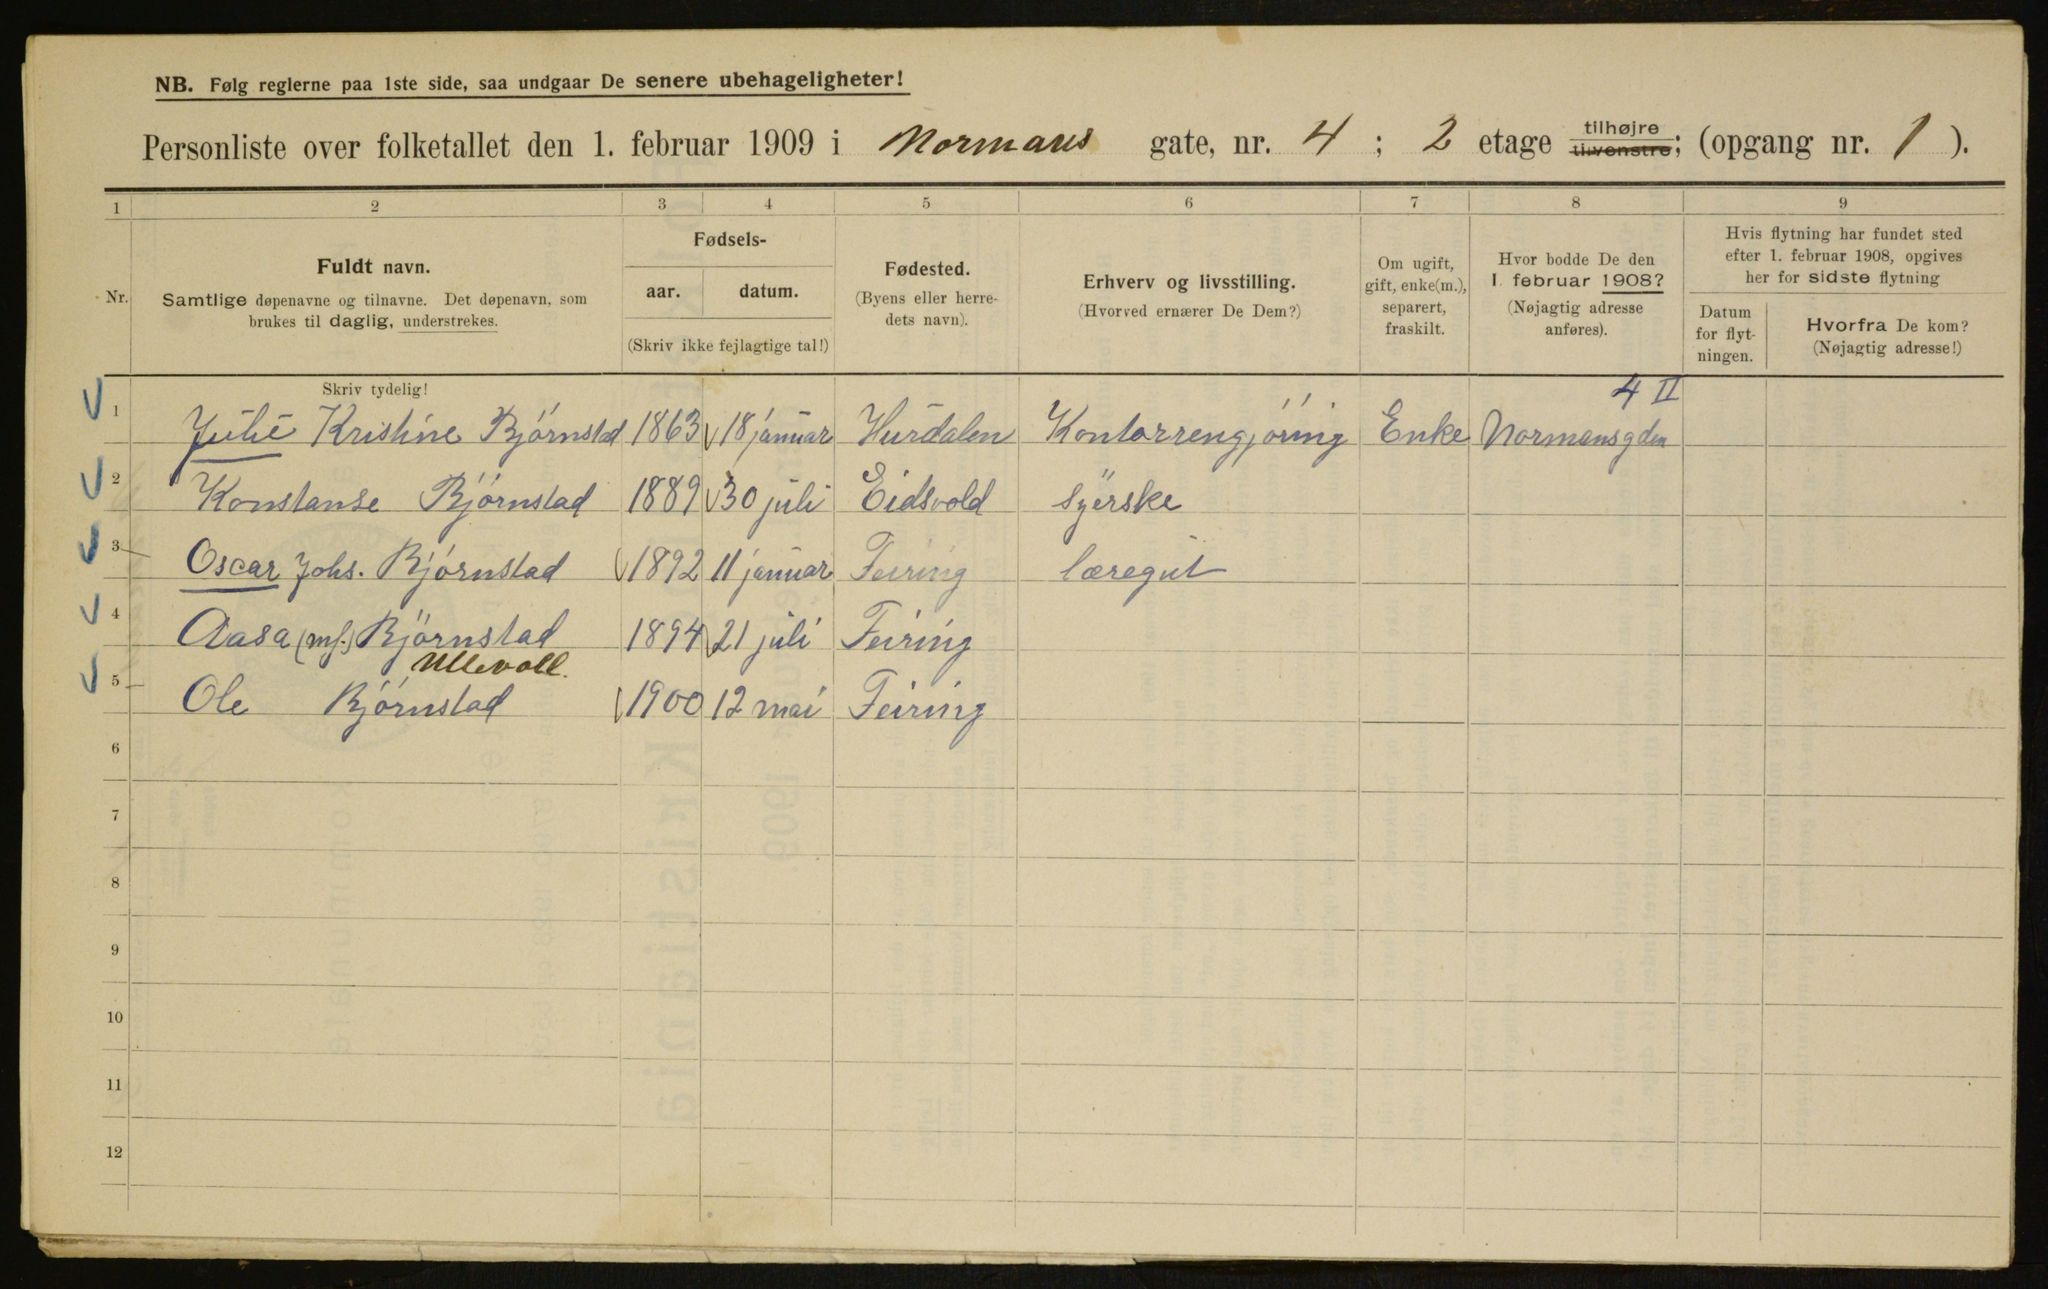 NB. Følg reglerne paa 1ste side, saa undgaar De senere ubehageligheter!
Personliste over folketallet den 1. februar 1909 i Normans gate, nr. 4 ; 2 etage tilhøjre tilvenstre; (opgang nr. 1 ).
1 2 3 4 5 6 7 8 9
Nr.
Fuldt navn.
Samtlige døpenavne og tilnavne. Det døpenavn, som
brukes til daglig, understrekes.
Fødsels-
aar. datum.
(Skriv ikke fejlagtige tal!)
Fødested.
(Byens eller herre-
dets navn).
Erhverv og livsstilling.
(Hvorved ernærer De Dem?)
Om ugift,
gift, enke(m.),
separert,
fraskilt.
Hvor bodde De den
1. februar 1908?
(Nøjagtig adresse
anføres).
Hvis flytning har fundet sted
efter 1. februar 1908, opgives
her for sidste flytning
Datum
for flyt-
ningen.
Hvorfra De kom?
(Nøjagtig adresse!)
Skriv tydelig!
4 II
1 Julie Kristine Bjørnstad 1863 18 januar Hurdalen Kontorrengjøring Enke Normansgden
2 Konstanse Bjørnstad 1889 30 juli Eidsvold syerske
3 Oscar Johs. Bjørnstad 1892 11 januar Feiring læregut
4 Aasa (mf.) Bjørnstad 1894 21 juli Feiring
Ullevoll.
5 Ole Bjørnstad 1900 12 mai Feiring
6
7
8
9
10
11
12